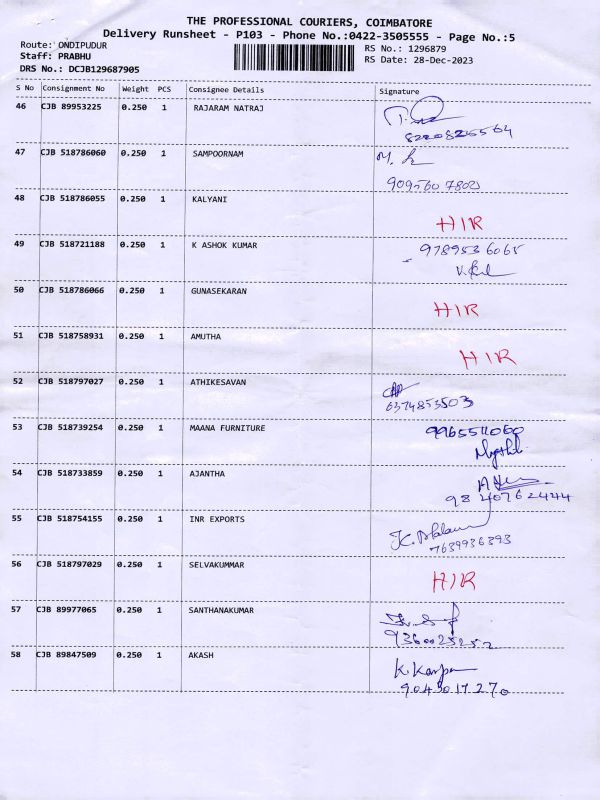 THE PROFESSIONAL COURIERS, COIMBATORE
Delivery Runsheet - P103 - Phone No.:0422-3505555 - Page No.:5
Route: ONDIPUDUR RS No.: 1296879
Staff: PRABHU RS Date: 28-Dec-2023
DRS No.: DCJB129687905
S No Consignment No Weight PCS Consignee Details Signature
46 CJB 89953225 0.250 1 RAJARAM NATRAJ
47 CJB 518786060 0.250 1 SAMPOORNAM
48 CJB 518786055 0.250 1 KALYANI
HIR
49 CJB 518721188 0.250 1 K ASHOK KUMAR
9789536065
50 CJB 518786066 0.250 1 GUNASEKARAN
HIR
51 CJB 518758931 0.250 1 AMUTHA
HIR
52 CJB 518797027 0.250 1 ATHIKESAVAN
6374853503
53 CJB 518739254 0.250 1 MAANA FURNITURE
9965511060
54 CJB 518733859 0.250 1 AJANTHA
9840762444
55 CJB 518754155 0.250 1 INR EXPORTS
7639936393
56 CJB 518797029 0.250 1 SELVAKUMMAR
HIR
57 CJB 89977065 0.250 1 SANTHANAKUMAR
9360025252
58 CJB 89847509 0.250 1 AKASH
9043017270